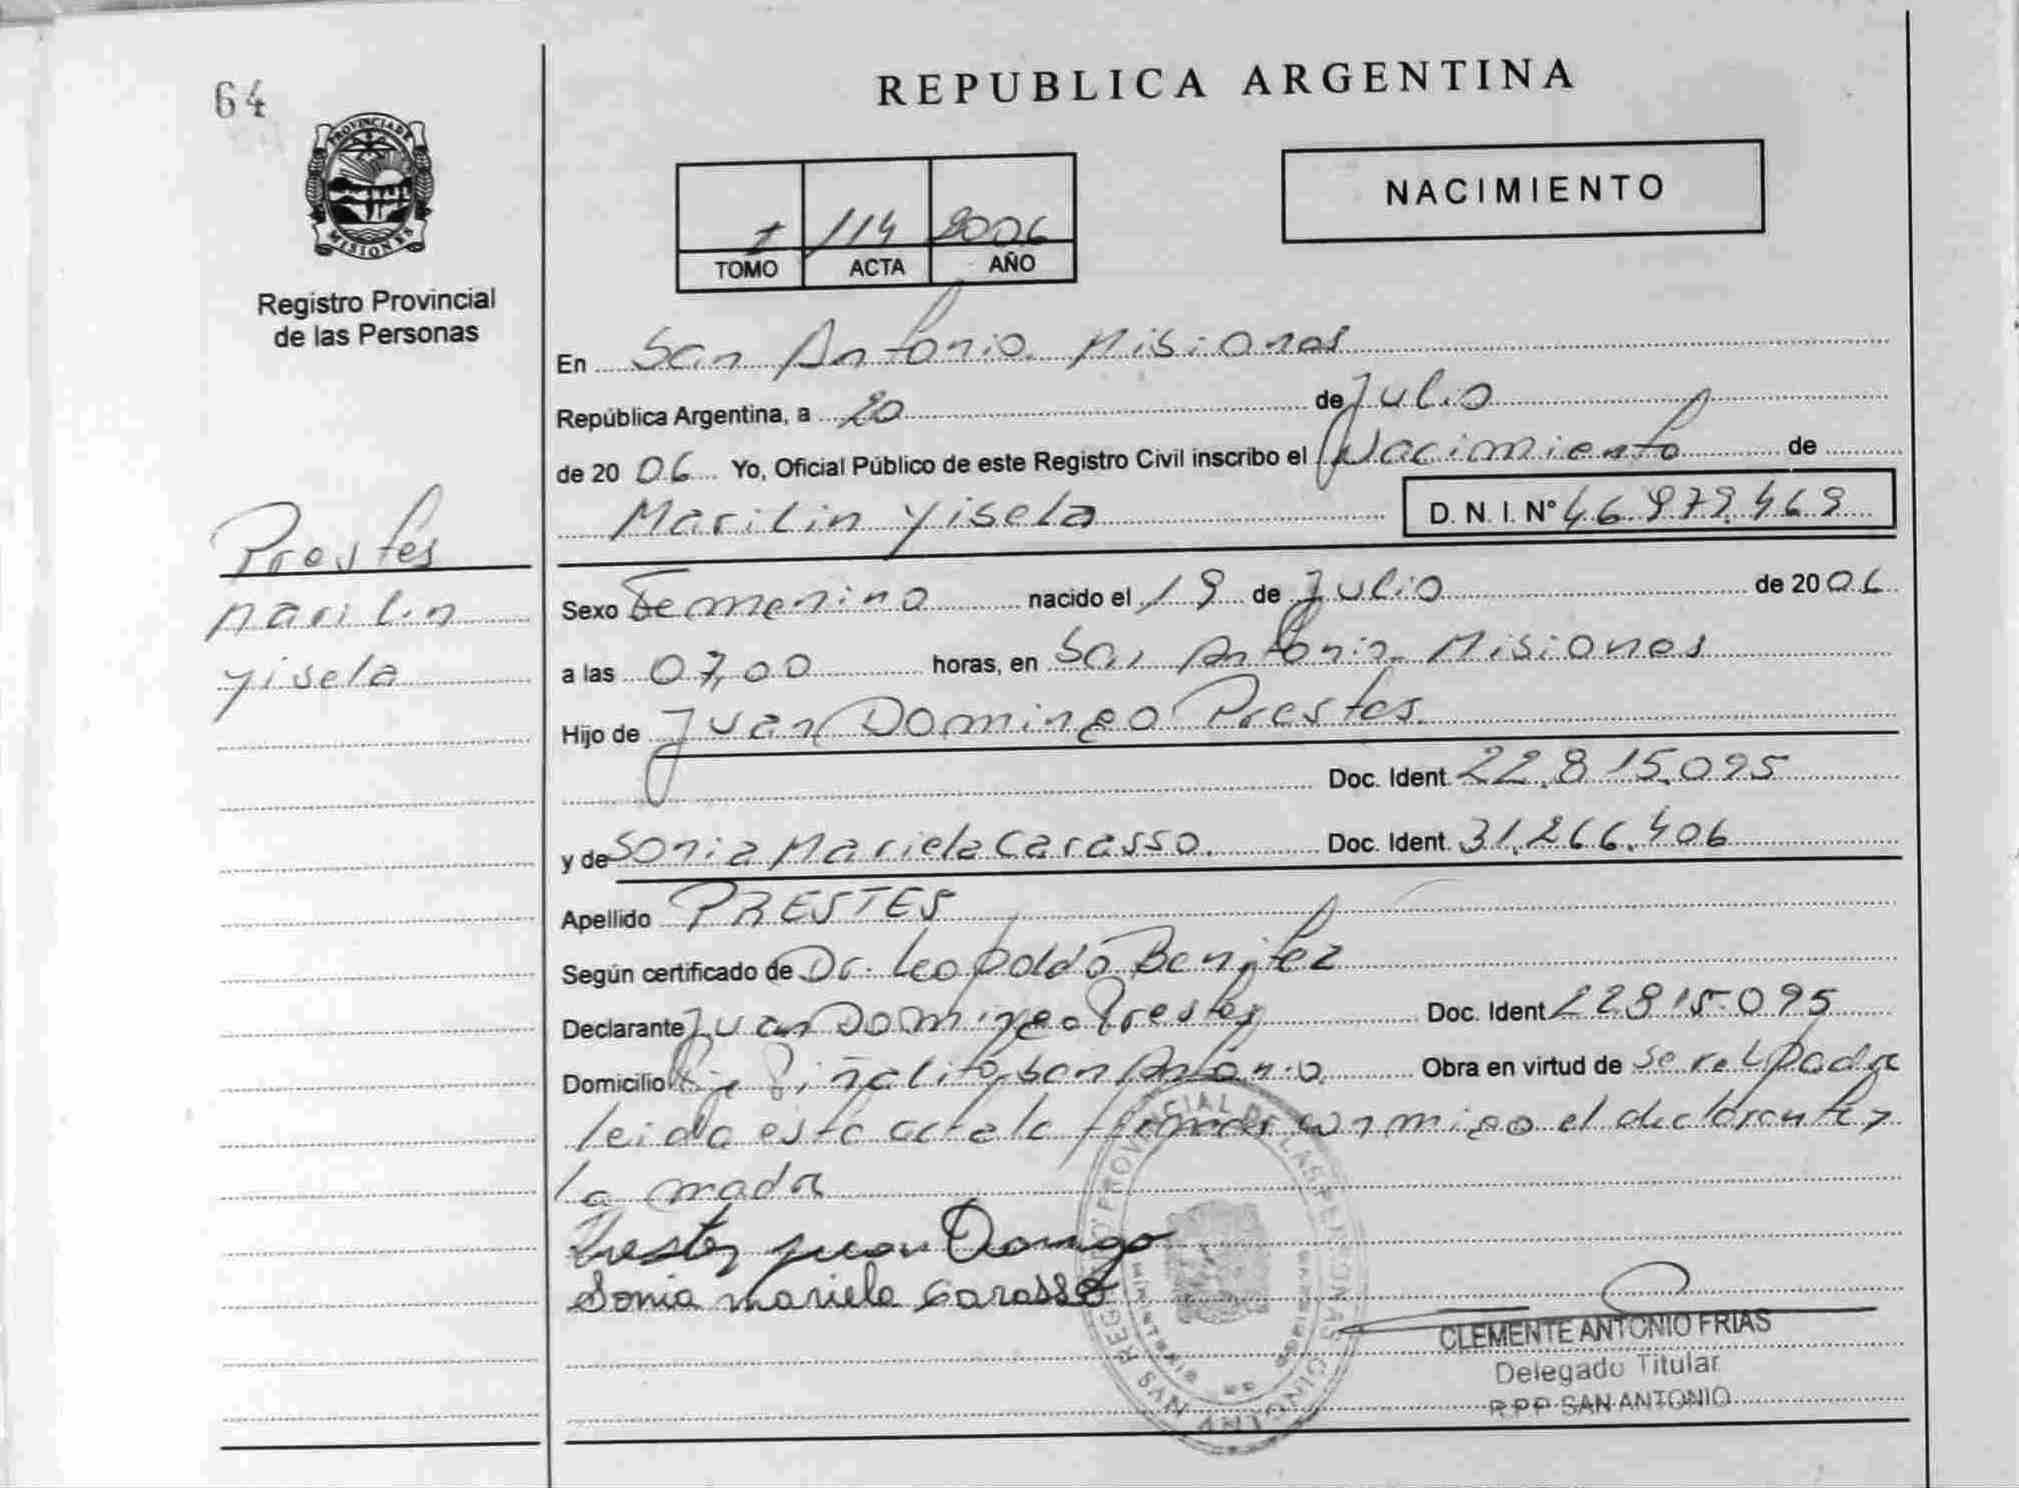 64
PROVINCIA DE
MISIONES
Registro Provincial
de las Personas
Prestes
Marilin
Yisela
REPUBLICA ARGENTINA
NACIMIENTO
I 114 2006
TOMO ACTA AÑO
En San Antonio Misiones
República Argentina, a 20 de Julio
de 20 06 Yo, Oficial Público de este Registro Civil inscribo el Nacimiento de
Marilin Yisela D. N. I. N° 46.979.469
Sexo Femenino nacido el 19 de Julio de 2006
a las 07,00 horas, en San Antonio Misiones
Hijo de Juan Domingo Prestes
Doc. Ident. 22.815.095
y de Sonia Mariela Carasso. Doc. Ident. 31.266.406
Apellido PRESTES
Según certificado de Dr. Leopoldo Benitez
Declarante Juan Domingo Prestes Doc. Ident 22815095
Domicilio Piñalito San Antonio Obra en virtud de ser el padre
leida esta acta la firman conmigo el declarante y
la madre
Prestes Juan Domingo
Sonia Mariela Carasso
REGISTRO PROVINCIAL DE LAS PERSONAS
SAN ANTONIO
CLEMENTE ANTONIO FRIAS
Delegado Titular
R.P.P SAN ANTONIO